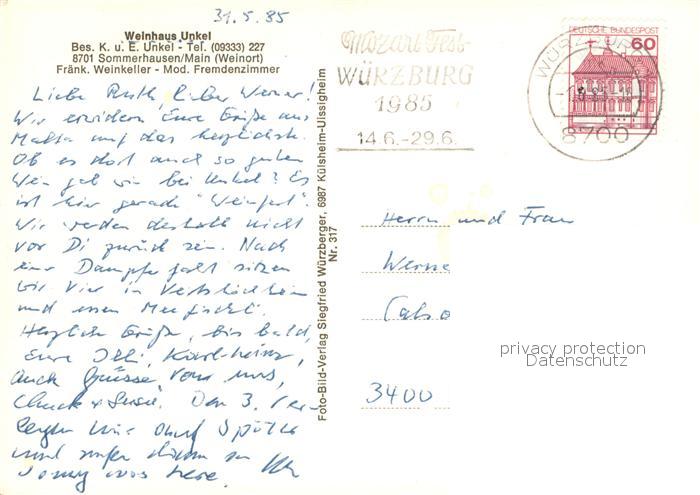 31.5.85
Weinhaus Unkel
Bes. K. u. E. Unkel - Tel. (09333) 227
8701 Sommerhausen/Main (Weinort)
Fränk. Weinkeller - Mod. Fremdenzimmer
Liebe Ruth, lieber Werner!
Wir erwidern Eure Grüße aus
Malta auf das herzlichste.
Ob es dort auch so guten
Wein gab wie bei Unkel? Es
ist hier gerade "Weinfest".
Wir werden deshalb nicht
vor Di zurück sein. Nach
einer Dampferfahrt sitzen
wir vier in Veitshöchheim
und essen Meefischli.
Herzliche Grüße, bis bald,
Eure Illi, Karlheinz,
auch Grüsse von uns,
Chuck + Susie. Den 3.
wir auf
und
Foto-Bild-Verlag Siegfried Würzberger, 6987 Külsheim-Uissigheim
Nr. 317
Mozart Fest
WÜRZBURG
1985
14.6.-29.6.
DEUTSCHE BUNDESPOST
60
WÜRZBURG
8700
Herrn und Frau
Werne
3400
privacy protection
Datenschutz